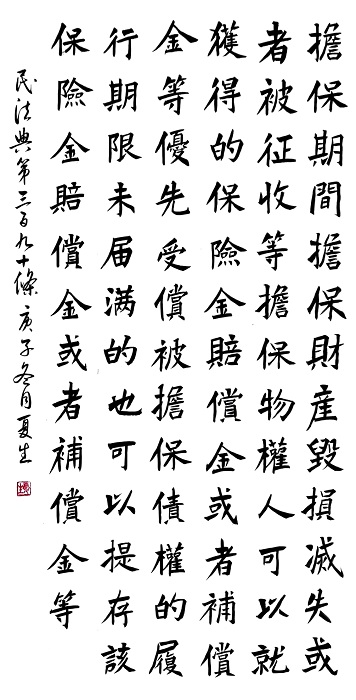 擔保期間擔保財產毀損滅失或
者被征收等擔保物權人可以就
獲得的保險金賠償金或者補償
金等優先受償被擔保債權的履
行期限未届满的也可以提存該
保險金賠償金或者補償金等
民法典第三百九十條 庚子冬月夏生